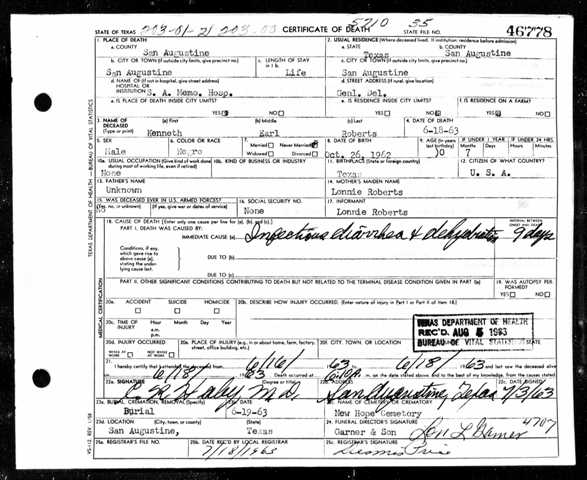 STATE OF TEXAS 203-01-21 203.00 CERTIFICATE OF DEATH 5710 35 STATE FILE NO. 46778
1. PLACE OF DEATH
a. COUNTY
San Augustine
2. USUAL RESIDENCE (Where deceased lived. If institution: residence before admission)
a. STATE Texas b. COUNTY San Augustine
b. CITY OR TOWN (If outside city limits, give precinct no.) San Augustine
c. LENGTH OF STAY in 1 b. Life
c. CITY OR TOWN (If outside city limits, give precinct no.) San Augustine
d. NAME OF (If not in hospital, give street address) HOSPITAL OR INSTITUTION S. A. Memo. Hosp.
d. STREET ADDRESS (If rural, give location) Genl. Del.
e. IS PLACE OF DEATH INSIDE CITY LIMITS? YES NO
e. IS RESIDENCE INSIDE CITY LIMITS? YES NO
f. IS RESIDENCE ON A FARM? YES NO
3. NAME OF DECEASED (Type or print) (a) First (b) Middle (c) Last 4. DATE OF DEATH
Kenneth Earl Roberts 6-18-63
5. SEX 6. COLOR OR RACE 7. Married Never Married Widowed Divorced 8. DATE OF BIRTH 9. AGE (In years last birthday) IF UNDER 1 YEAR Months Days IF UNDER 24 HRS. Hours Min.
Male Negro Oct. 26, 1962 0 7
10a. USUAL OCCUPATION (Give kind of work done during most of working life, even if retired) 10b. KIND OF BUSINESS OR INDUSTRY 11. BIRTHPLACE (State or foreign country) 12. CITIZEN OF WHAT COUNTRY?
None Texas U. S. A.
13. FATHER'S NAME 14. MOTHER'S MAIDEN NAME
Unknown Lonnie Roberts
15. WAS DECEASED EVER IN U.S. ARMED FORCES? (Yes, no, or unknown) (If yes, give war or dates of service) 16. SOCIAL SECURITY NO. 17. INFORMANT
No None Lonnie Roberts
18. CAUSE OF DEATH [Enter only one cause per line for (a), (b), and (c).] INTERVAL BETWEEN ONSET AND DEATH
PART I. DEATH WAS CAUSED BY:
IMMEDIATE CAUSE (a) Infectious diarrhea & dehydration 9 days
Conditions, if any, which gave rise to above cause (a), stating the underlying cause last.
DUE TO (b)
DUE TO (c)
PART II. OTHER SIGNIFICANT CONDITIONS CONTRIBUTING TO DEATH BUT NOT RELATED TO THE TERMINAL DISEASE CONDITION GIVEN IN PART I(a) 19. WAS AUTOPSY PERFORMED? YES NO
20a. ACCIDENT SUICIDE HOMICIDE 20b. DESCRIBE HOW INJURY OCCURRED. (Enter nature of injury in Part I or Part II of item 18.)
20c. TIME OF INJURY Hour a.m. p.m. Month Day Year
TEXAS DEPARTMENT OF HEALTH
REC'D. AUG 5 1963
BUREAU OF VITAL STATISTICS
20d. INJURY OCCURRED WHILE AT WORK NOT WHILE AT WORK 20e. PLACE OF INJURY (e.g., in or about home, farm, factory, street, office building, etc.) 20f. CITY, TOWN, OR LOCATION COUNTY STATE
21. I hereby certify that I attended the deceased from 6/16/ 63 to 6/18/ 63
Death occurred at on the date stated above, and to the best of my knowledge, from the causes stated.
22a. SIGNATURE (Degree or title) 22b. ADDRESS 22c. DATE SIGNED
M.D. San Augustine, Texas 7/3/63
23a. BURIAL, CREMATION, REMOVAL (Specify) 23b. DATE 23c. NAME OF CEMETERY OR CREMATORY
Burial 6-19-63 New Hope Cemetery
23d. LOCATION (City, town, or county) (State) 24. FUNERAL DIRECTOR'S SIGNATURE
San Augustine, Texas Garner & Son 4707
25a. REGISTRAR'S FILE NO. 25b. DATE REC'D BY LOCAL REGISTRAR 25c. REGISTRAR'S SIGNATURE
7/18/1963
TEXAS DEPARTMENT OF HEALTH—BUREAU OF VITAL STATISTICS
MEDICAL CERTIFICATION
VS-112 REV. 1-58